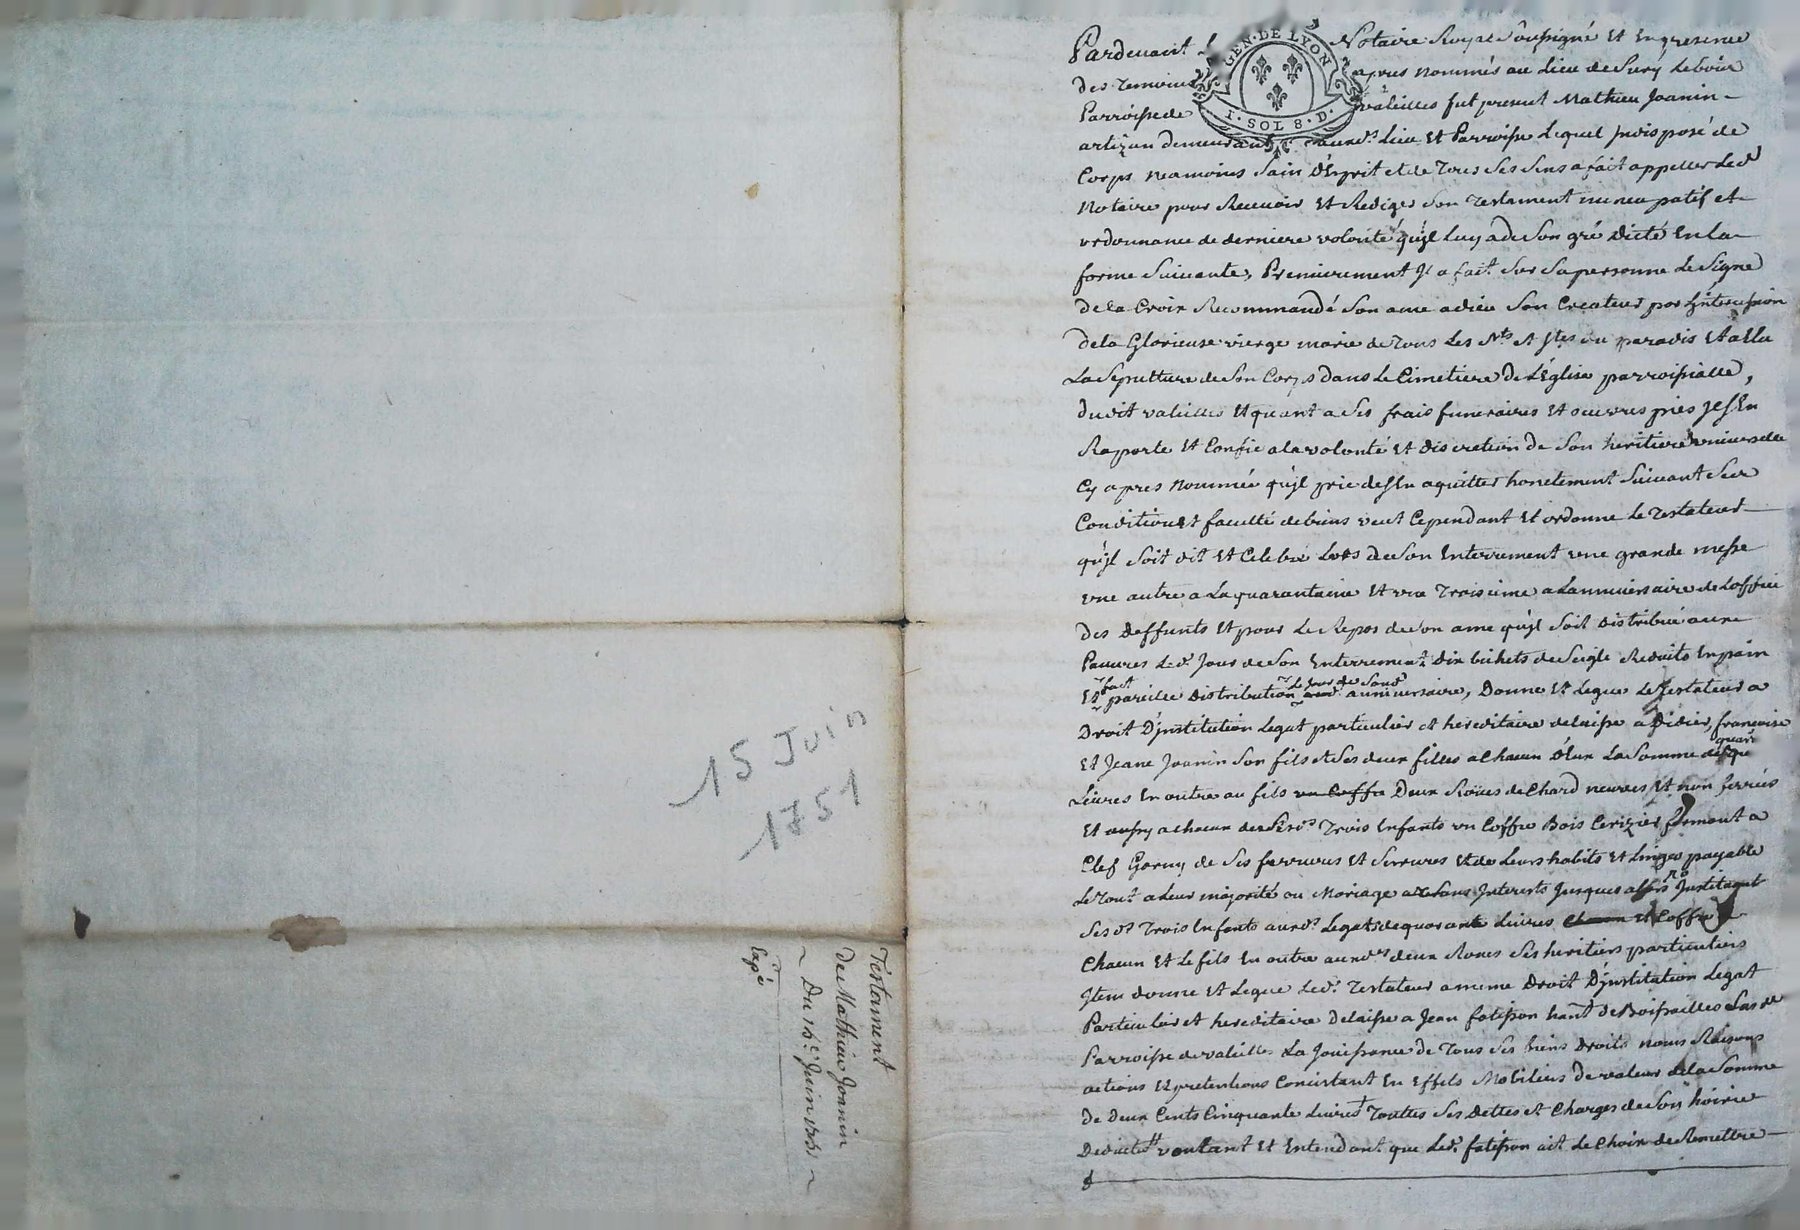 15 Juin
1751
Testament
de Mathieu Joanin
Du 15e Juin 1751
Expé
GEN · DE LYON
I · SOL 8 · D.
Pardevant Notaire Royal Soussigné Et En presence
des Temoins apres nommés au Lieu de Sury Lebois
Parroisse de valeilles fut present Mathieu Joanin
artizan demeurant aud. Lieu Et Parroisse Lequel Indisposé de
Corps neamoins Sain D'Esprit et de Tous Ses Sens a fait appeller Led
Notaire pour Recevoir Et Rediger Son Testament nuncupatif et
ordonnance de derniere volonté qu'jl luy a de Son gré Dicté En la
forme Suivante, Premierement Jl a fait Sur Sa personne Le Signe
de la Croix Recommandé Son ame a dieu Son Createur par Lintercession
de la Glorieuse vierge marie de Tous Les Sts et Stes du paradis Et a Elu
La Sepulture de Son Corps Dans Le Cimetiere De L'Eglise parroissialle,
dudit valeilles Et quant a Ses frais funeraires Et oeuvres pies Jl S'En
Raporte Et Confie a la volonté Et discretion de Son heritiere universelle
Cy apres nommée qu'jl prie de S'En aquitter honetement Suivant Sa
Condition Et faculté de biens veut Cependant Et ordonne Le Testateur
qu'jl Soit dit Et Celebré Lors de Son Enterrement une grande messe
une autre a La quarantaine Et une Troisieme a Lanniversaire de Loffice
des deffunts Et pour Le Repos de Son ame qu'jl Soit distribué aux
Pauvres Led. Jour de Son Enterrement Dix bichets de Seigle Reduits En pain
Et fait pareille distribution Le Jour de Sond anniversaire, Donne Et Legue Le Testateur a
Droit D'institution Legat particulier et hereditaire delaisse a Didier, francoise
Et Jeane Joanin Son fils et Ses deux filles a Chacun D'eux La Somme de quarante
Livres En outre au fils un Coffre Deux Roües de Chard neuves Et non ferrées
Et a Chacun de Sesd. Trois Enfants un Coffre Bois Cerizier fermant a
Clef Garny de Ses ferrures Et Serrures Et de Leurs habits Et Linges payable
Le Tout a Leur majorité ou Mariage Sans Interests Jusques alors Instituant
Sesd. Trois Enfants auxd. Legats de quarante Livres Et Coffre
Chacun Et Le fils En outre auxd. deux Roues Ses heritiers particuliers
Jtem donne Et Legue Led. Testateur a meme Droit D'jnstitution Legat
Particulier et hereditaire Delaisse a Jean fatisson hant de Boissailles
Parroisse de valeilles La Jouissance de Tous Ses biens Droits noms Raisons
actions Et pretentions Concistant En Effets Mobiliers De valeur de la Somme
de Deux Cents Cinquante Livres Touttes Ses Dettes et Charges de Son hoirie
Deduites voulant Et Entendant que Led. fatisson ait Le Choix de Remettre